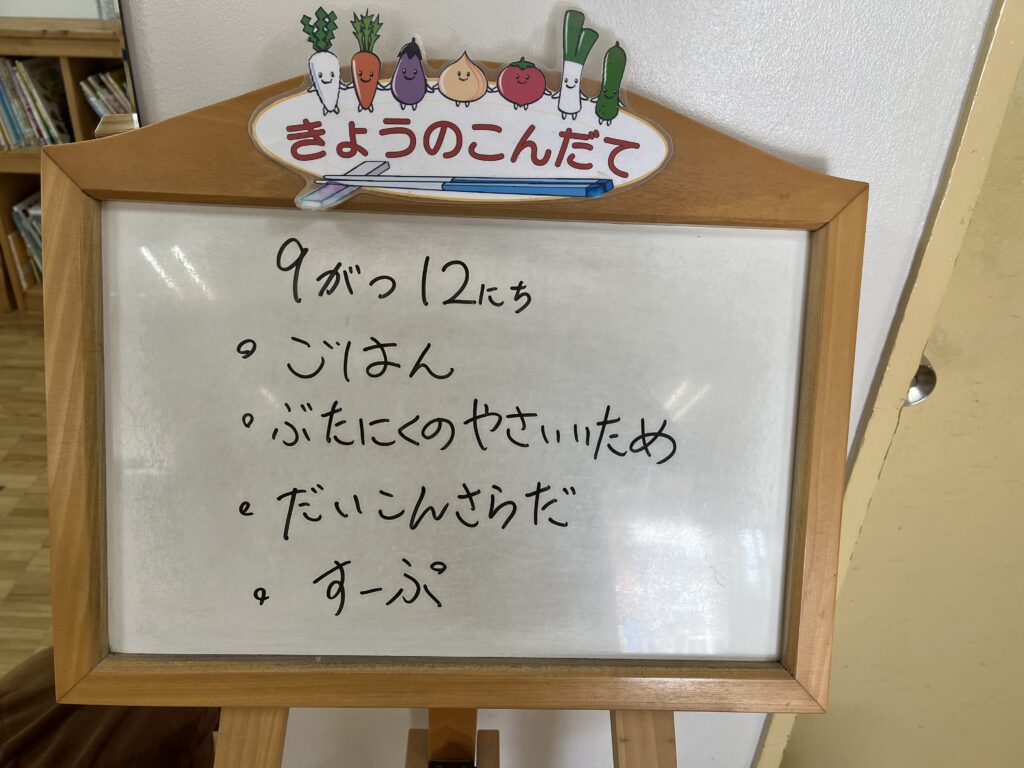 きょうのこんだて
9がつ12にち
・ごはん
・ぶたにくのやさいいため
・だいこんさらだ
・すーぷ